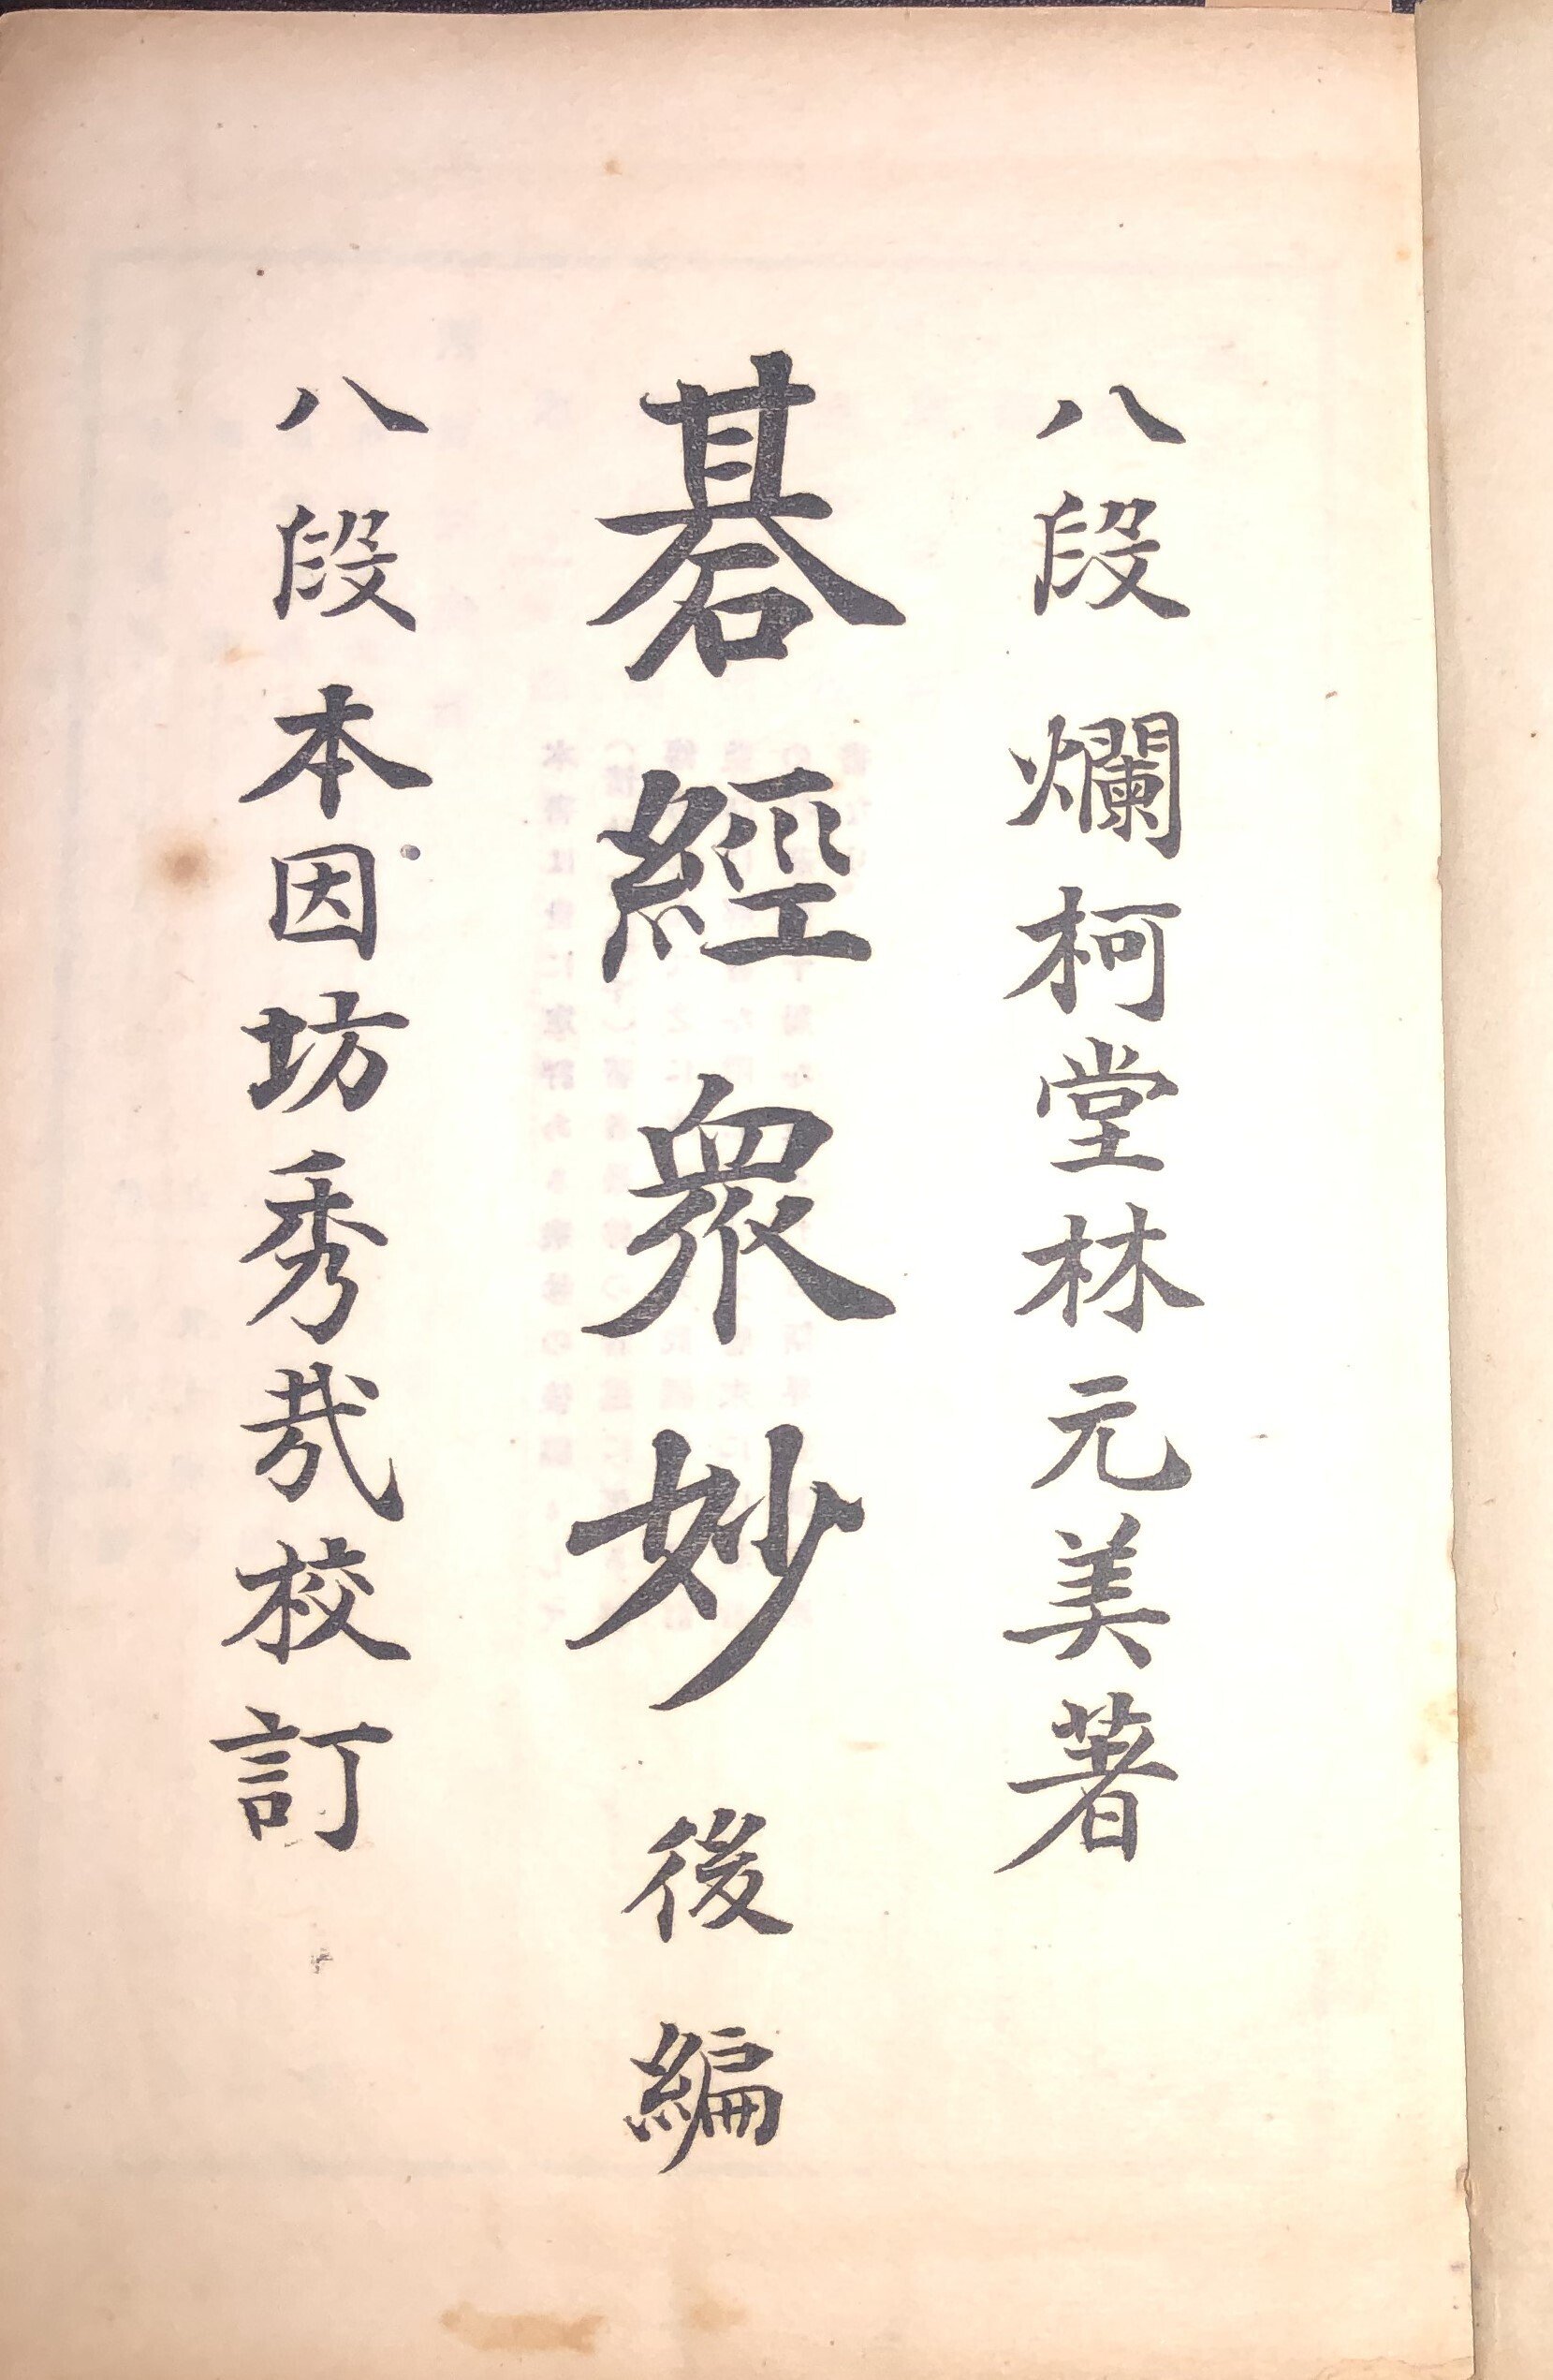 八段 爛柯堂林元美著
碁經衆妙 後編
八段 本因坊秀哉校訂